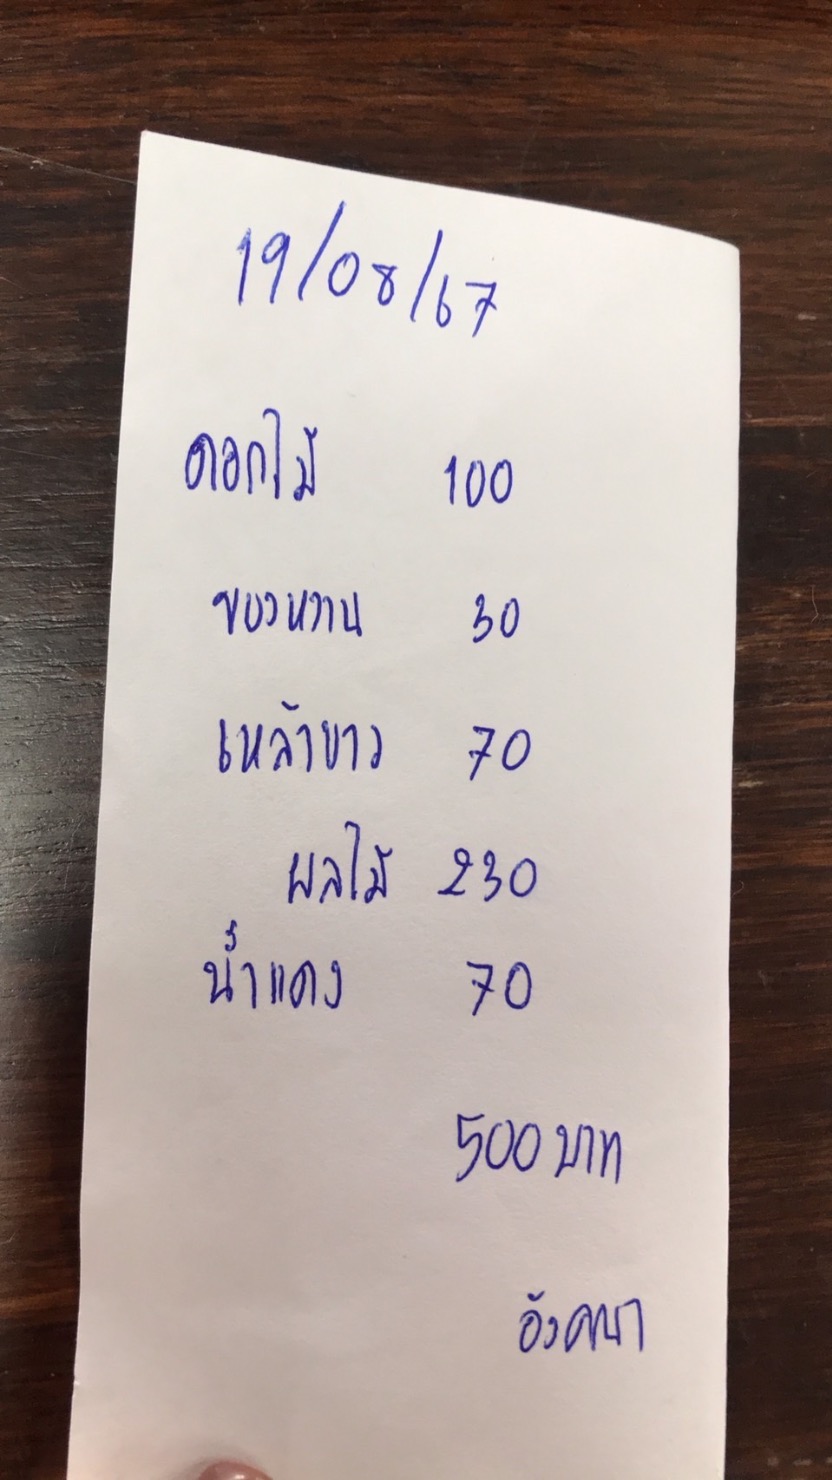 19/08/67
ดอกไม้ 100
ของหวาน 30
เหล้าขาว 70
ผลไม้ 230
น้ำแดง 70
500 บาท
อังคณา